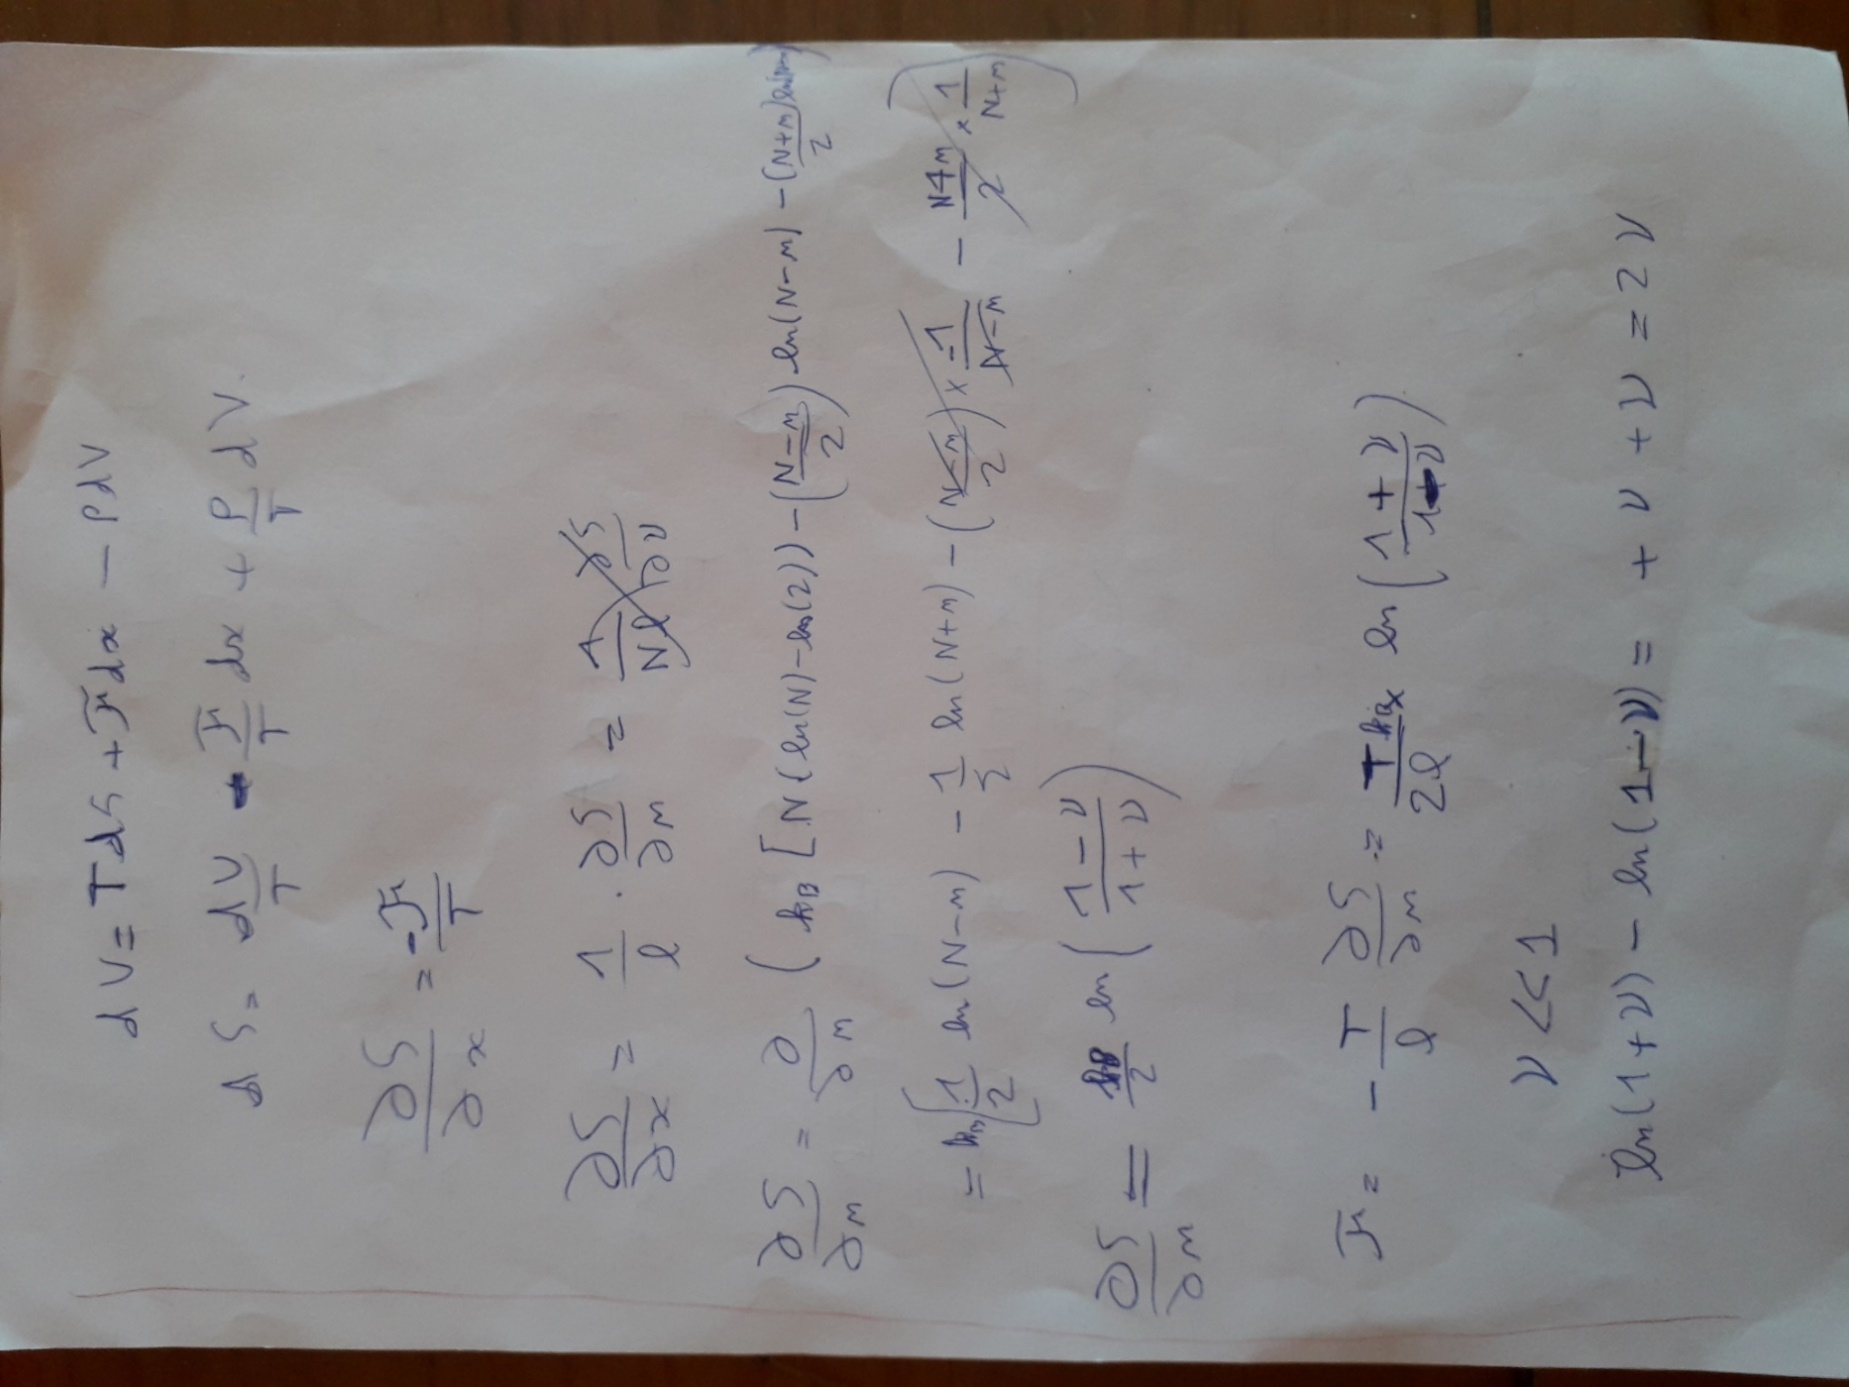 dU = TdS + F dx - PdV
dS = dU/T - F/T dx + P/T dV.
∂S/∂x = -F/T
∂S/∂x = 1/l . ∂S/∂n = 1/Nl ∂S/∂ν
∂S/∂n = ∂/∂n ( kB [ N (ln(N) - ln(2)) - (N-n/2) ln(N-n) - (N+n)/2 ln(N+n)
= kB [ 1/2 ln(N-n) - 1/2 ln(N+n) - (N-n/2) × -1/N-n - N+n/2 × 1/N+n )
∂S/∂n = kB/2 ln ( 1-ν/1+ν )
F = - T/l ∂S/∂n = T kB/2l × ln ( 1+ν/1-ν )
ν << 1
ln(1+ν) - ln(1-ν) = + ν + ν = 2ν